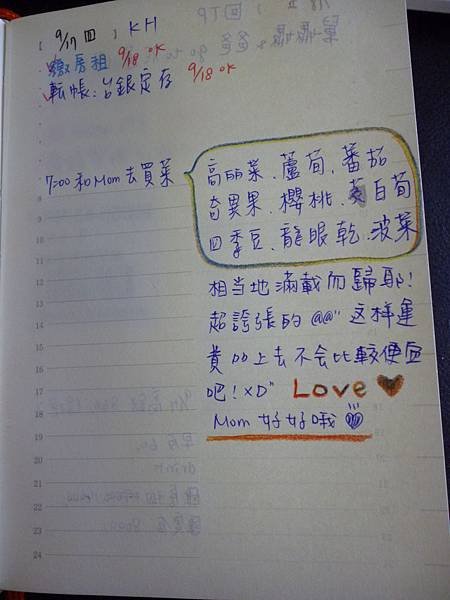 ( 9/17 四 ) KH
繳房租 9/18 OK
転帳:台銀定存 9/18 OK
7:00 和 Mom 去買菜
高丽菜、蘆筍、番茄
奇異果、櫻桃、茭白筍
四季豆、龍眼乾、波菜
相当地滿載而歸耶!
超誇張的 @@" 这样運
費加上去不会比較便宜
吧! XD" Love
Mom 好好哦
9
10
11
12
13
14
15
16
17
18
19
20
21
22
23
24